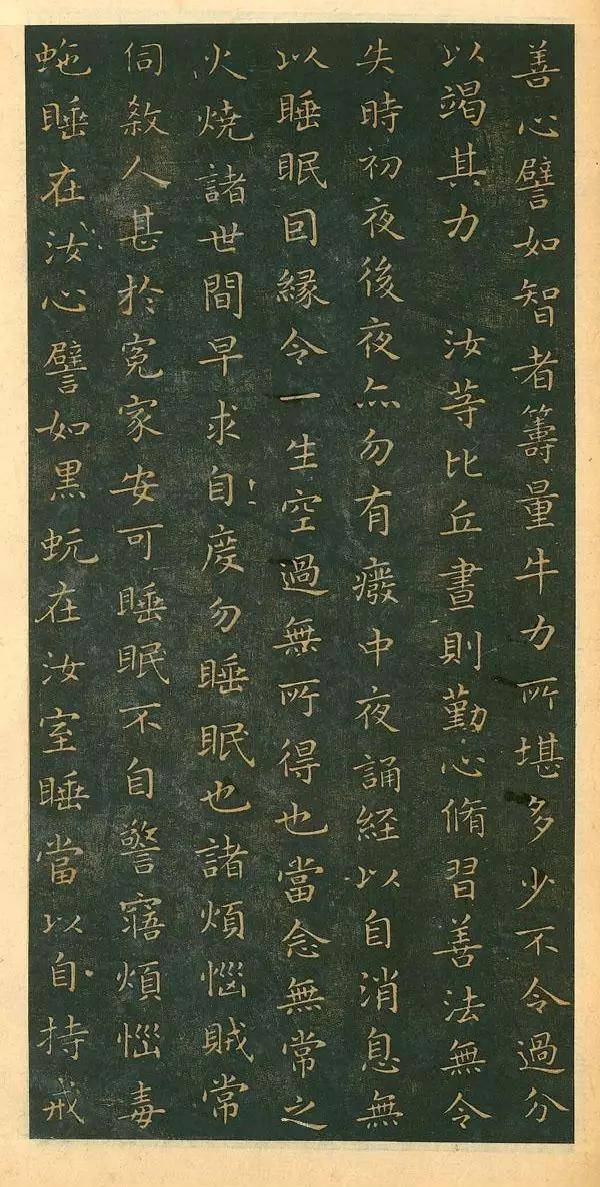 善心譬如智者籌量牛力所堪多少不令過分
以竭其力　汝等比丘晝則勤心脩習善法無令
失時初夜後夜亦勿有癈中夜誦経以自消息無
以睡眠因縁令一生空過無所得也當念無常之
火燒諸世間早求自度勿睡眠也諸煩惱賊常
伺煞人甚於寃家安可睡眠不自警寤煩惱毒
虵睡在汝心譬如黒蚖在汝室睡當以自持戒